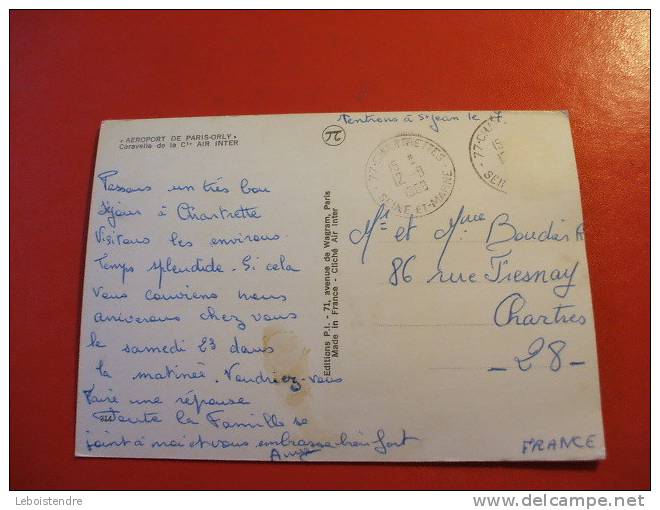 « AEROPORT DE PARIS-ORLY »
Caravelle de la Cie AIR INTER
Passons un très bon
séjour à Chartrette
Visitons les environs
Temps splendide. Si cela
vous convient nous
arriverons chez vous
le samedi 23 dans
la matinée. Voudriez-vous
faire une réponse
Toute la Famille se
joint à moi et vous embrasse bien fort
Editions P.I. - 71, avenue de Wagram, Paris
Made in France - Cliché Air Inter
26
rentrons à St Jean le 27
77-CHARTRETTES
SEINE-ET-MARNE
77-CHA
SEI
Mr et Mme
86 rue Fresnay
Chartres
- 28 -
FRANCE
Leboistendre
www.delcampe.net